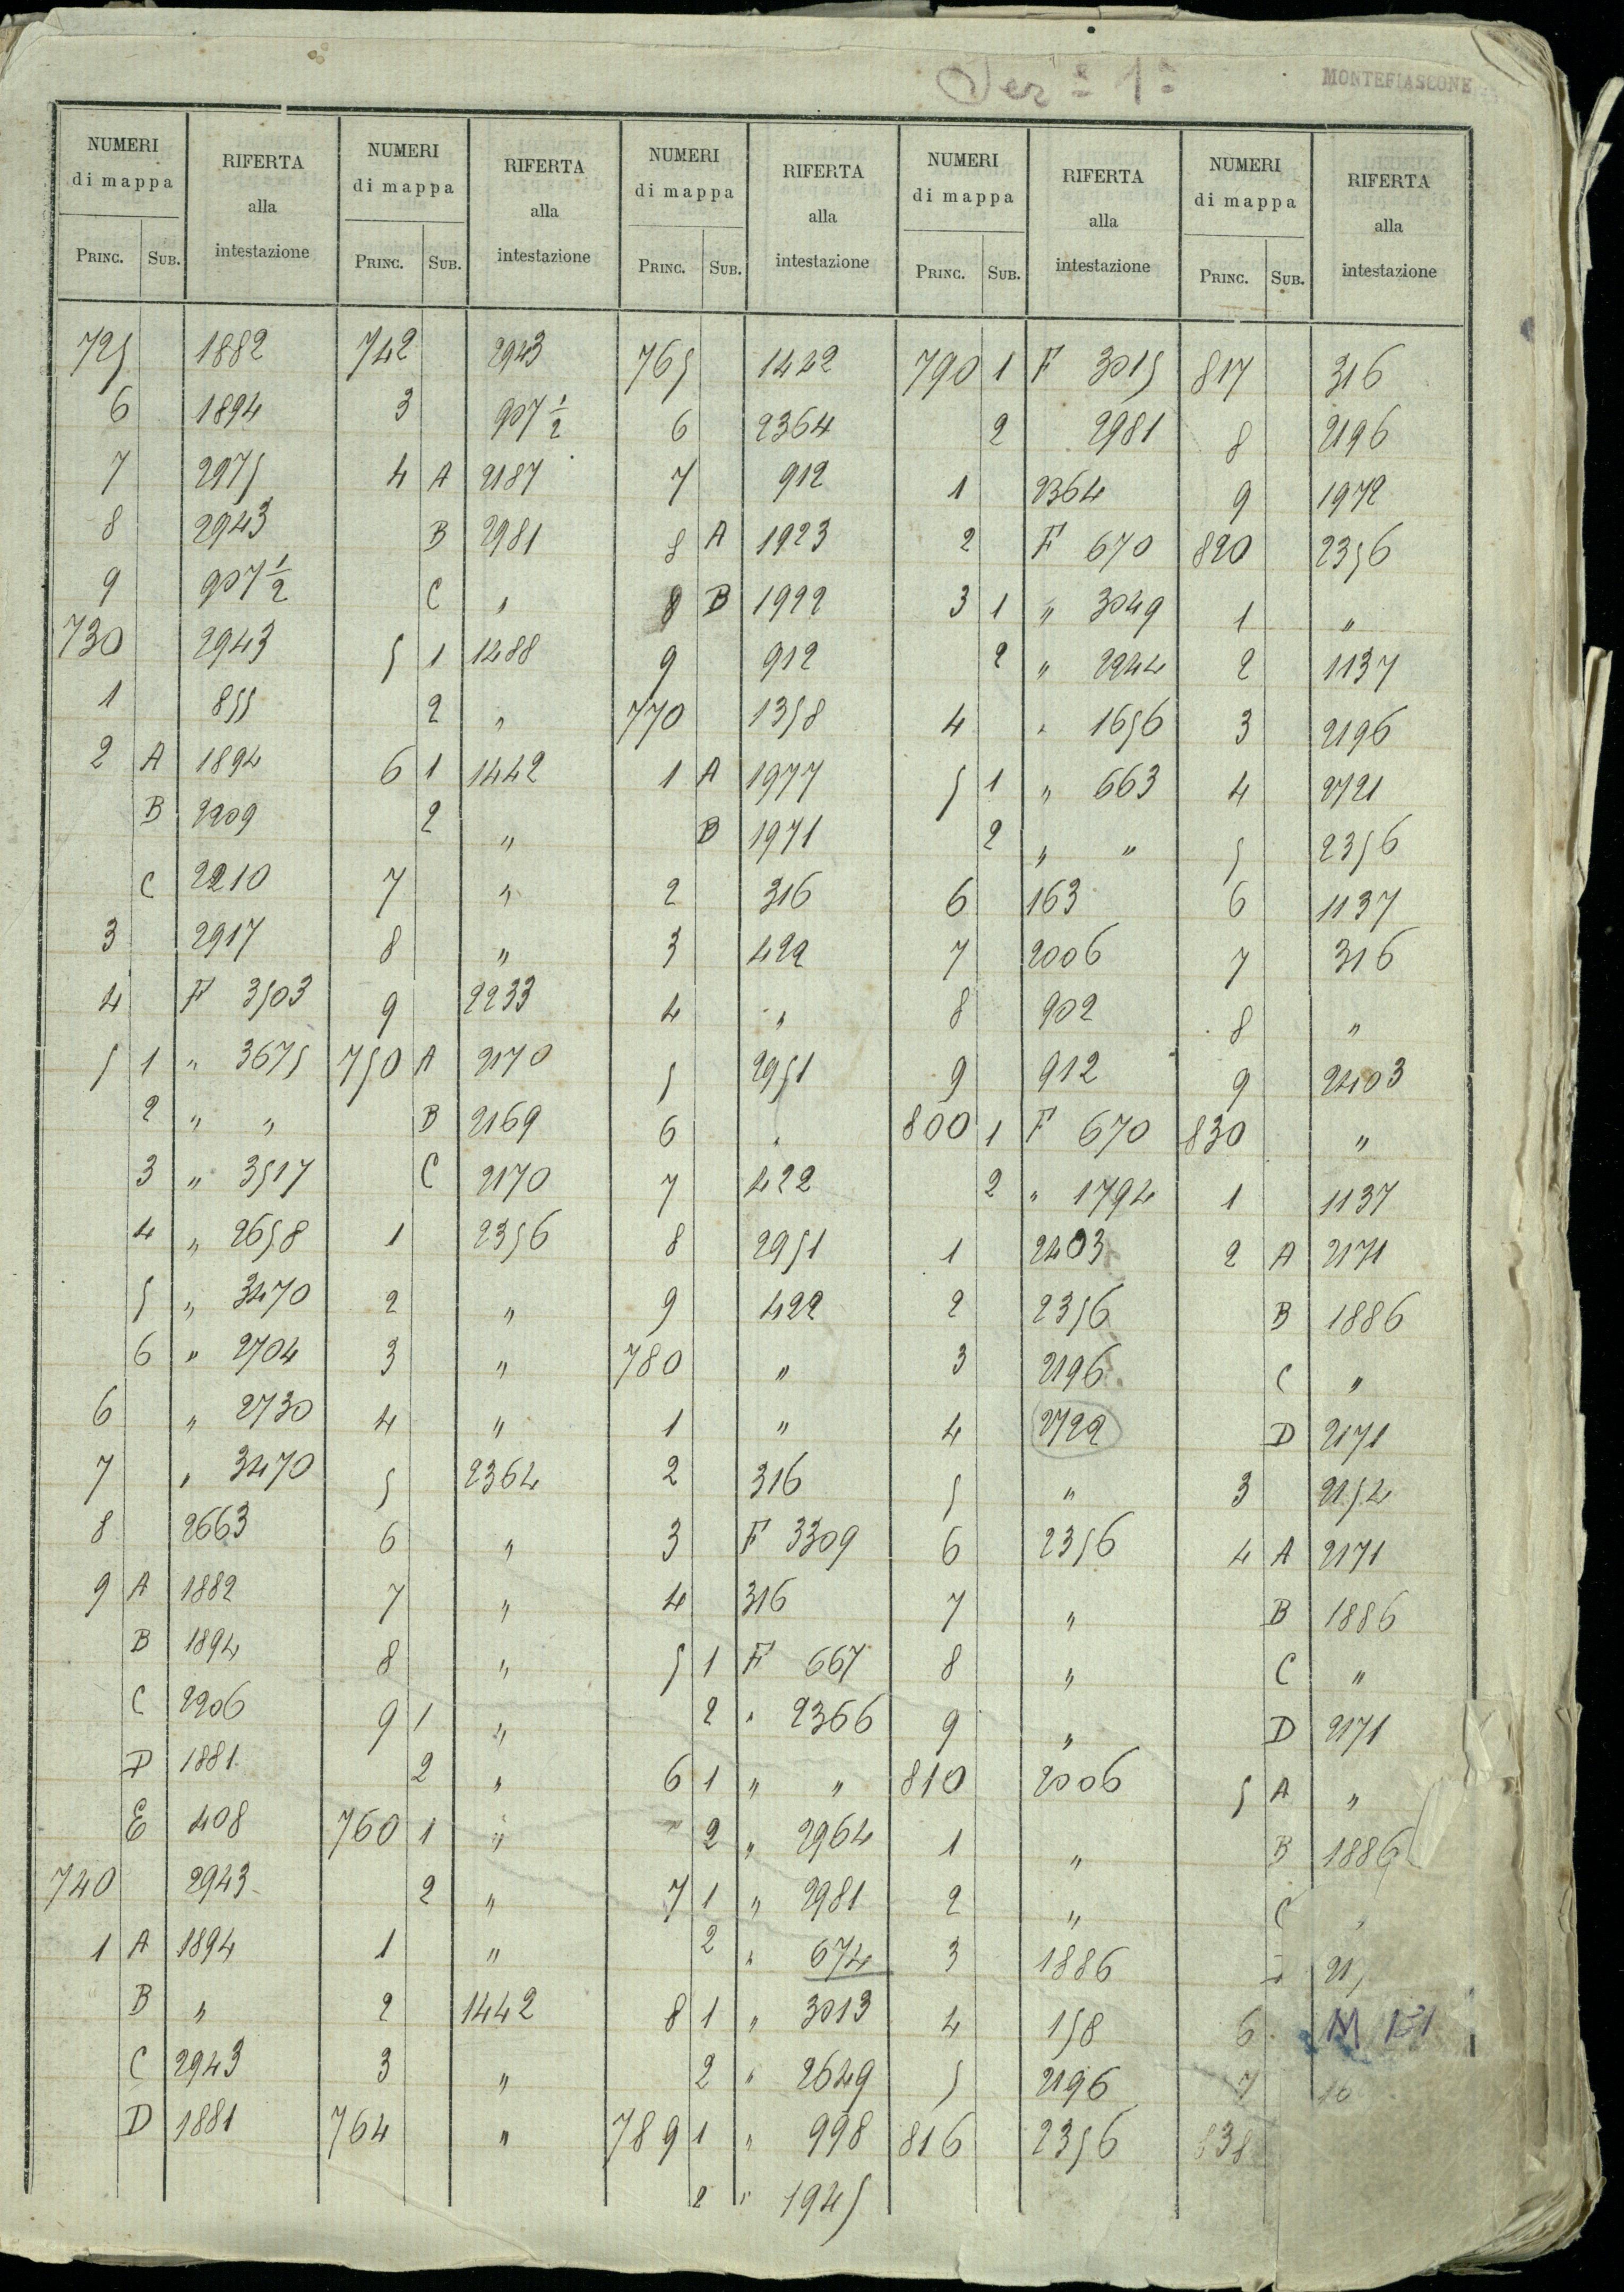 Sez.e 1a
MONTEFIASCONE
NUMERI di mappa
PRINC. SUB.
RIFERTA alla intestazione
725 1882
6 1894
7 2975
8 2943
9 907 1/2
730 2943
1 855
2 A 1894
B 2209
C 2210
3 2917
4 F 3503
5 1 " 3675
2 " "
3 " 3517
4 " 2658
5 " 3470
6 " 2704
6 " 2730
7 " 3470
8 2663
9 A 1882
B 1894
C 2206
D 1881
E 408
740 2943
1 A 1894
B "
C 2943
D 1881
NUMERI di mappa
PRINC. SUB.
RIFERTA alla intestazione
742 2943
3 907 1/2
4 A 2187
B 2981
C "
5 1 1488
2 "
6 1 1442
2 "
7 "
8 "
9 2233
750 A 2170
B 2169
C 2170
1 2356
2 "
3 "
4 "
5 2364
6 "
7 "
8 "
9 1 "
2 "
760 1 "
2 "
1 "
2 1442
3 "
764 "
NUMERI di mappa
PRINC. SUB.
RIFERTA alla intestazione
765 1442
6 2364
7 912
8 A 1923
8 B 1922
9 912
770 1358
1 A 1977
B 1971
2 316
3 422
4 "
5 2951
6 "
7 422
8 2951
9 422
780 "
1 "
2 316
3 F 3309
4 316
5 1 F 667
2 " 2366
6 1 " "
2 " 2964
7 1 " 2981
2 " 674
8 1 " 3013
2 " 2649
789 1 " 998
2 " 1945
NUMERI di mappa
PRINC. SUB.
RIFERTA alla intestazione
790 1 F 3015
2 2981
1 2364
2 F 670
3 1 " 3049
2 " 2244
4 " 1656
5 1 " 663
2 " "
6 163
7 2006
8 902
9 912
800 1 F 670
2 " 1794
1 2403
2 2356
3 2196
4 2722
5 "
6 2356
7 "
8 "
9 "
810 2006
1 "
2 "
3 1886
4 158
5 2196
816 2356
NUMERI di mappa
PRINC. SUB.
RIFERTA alla intestazione
817 316
8 2196
9 1972
820 2356
1 "
2 1137
3 2196
4 2721
5 2356
6 1137
7 316
8 "
9 2403
830 "
1 1137
2 A 2171
B 1886
C "
D 2171
3 2154
4 A 2171
B 1886
C "
D 2171
5 A "
B 1886
C "
21
6
7 16
838